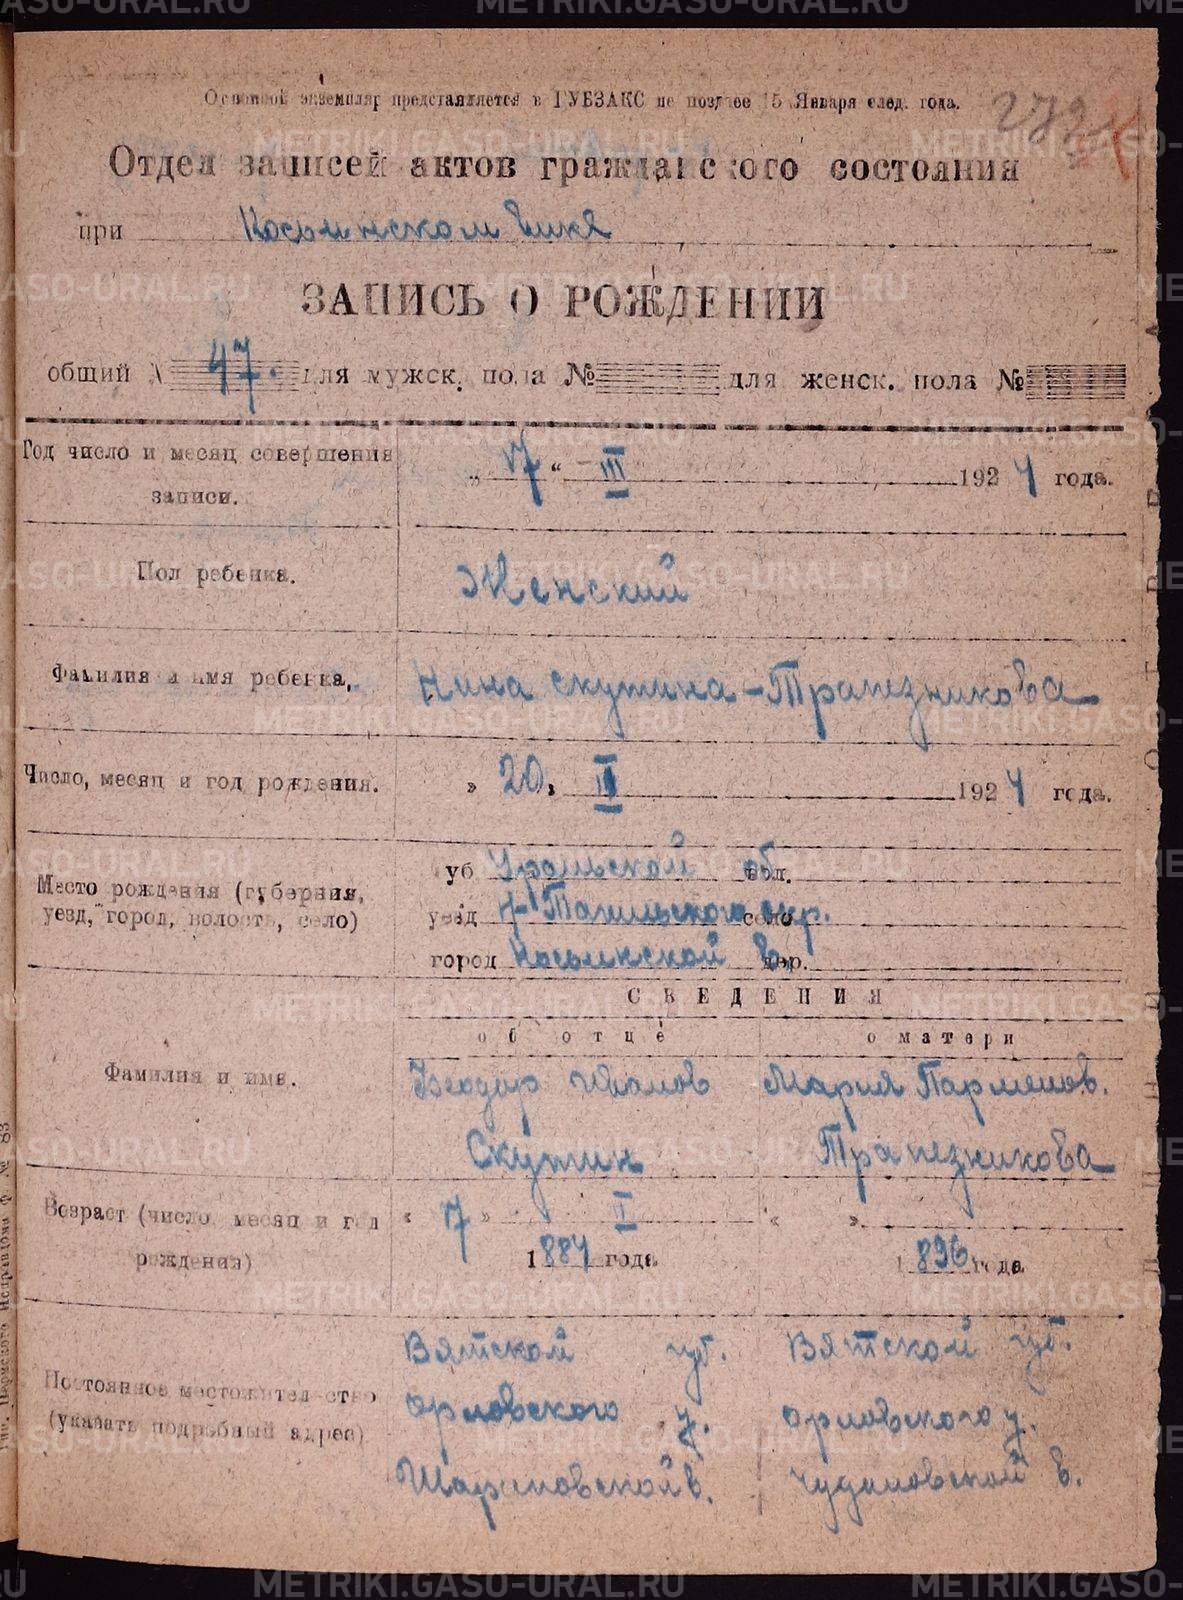 Основной экземпляр представляется в ГУБЗАКС не позднее 15 Января след. года.
Отдел записей актов гражданского состояния
при Косьинском Вике
ЗАПИСЬ О РОЖДЕНИИ
общий № 47. для мужск. пола № для женск. пола №
Год число и месяц совершения записи.
„ 17 “ III 1924 года.
Пол ребенка.
Женский
Фамилия и имя ребенка,
Нина Скутина-Трапезникова
Число, месяц и год рождения.
» 20, II 1924 года.
Место рождения (губерния, уезд, город, волость, село)
губ Уральской обл.
уезд Н-Тагильского окр. село
город Косьинской в. дер.
СВЕДЕНИЯ
об отце о матери
Фамилия и имя.
Феодор Иванов Мария Парменов.
Скутин Трапезникова
Возраст (число, месяц и год рождения)
« 17 » I « »
1884 года 1896 года
Постоянное местожительство (указать подробный адрес)
Вятской губ. Вятской губ.
Орловского у. Орловского у.
в. Чудиновской в.
METRIKI.GASO-URAL.RU